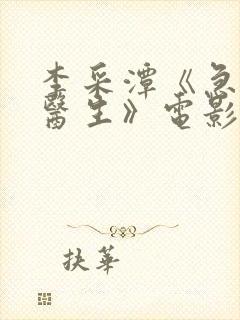 李采潭《急
醫生》電影
扶華